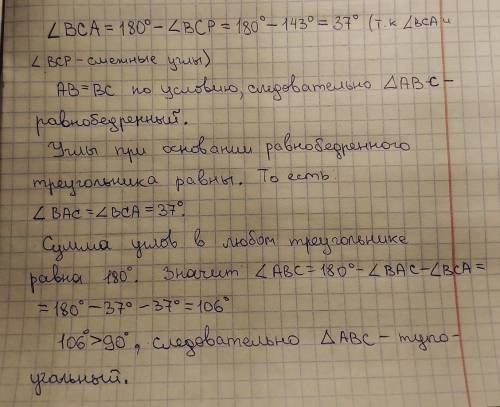 ∠BCA = 180° - ∠BCP = 180° - 143° = 37° (т.к ∠BCA и
∠BCP - смежные углы)
AB = BC по условию, следовательно △ABC -
равнобедренный.
Углы при основании равнобедренного
треугольника равны. То есть
∠BAC = ∠BCA = 37°.
Сумма углов в любом треугольнике
равна 180°. Значит ∠ABC = 180° - ∠BAC - ∠BCA =
= 180° - 37° - 37° = 106°
106° > 90°, следовательно △ABC - тупо-
угальный.